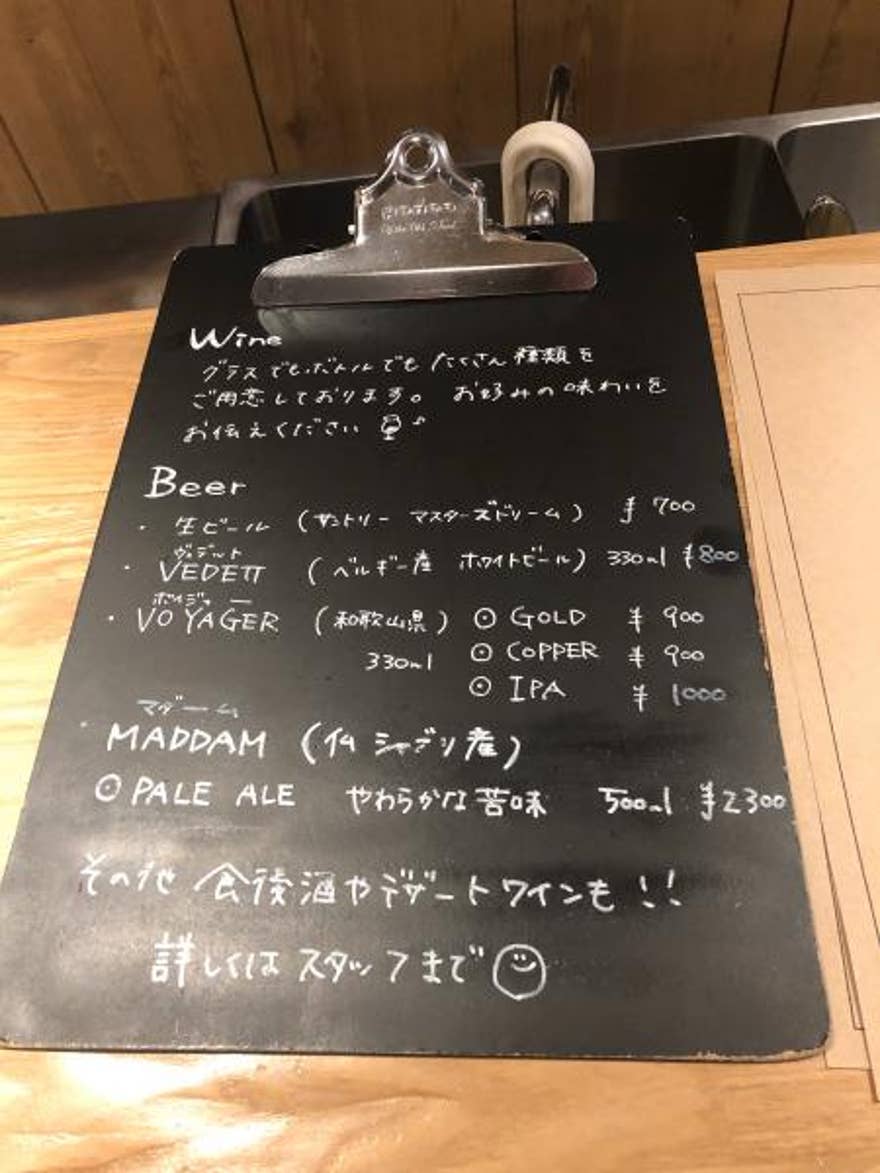 Wine
グラスでもボトルでもたくさん種類を
ご用意しております。 お好みの味わいを
お伝えください
Beer
・生ビール (サントリー マスターズドリーム) ¥700
ヴェデット
・VEDETT (ベルギー産 ホワイトビール) 330ml ¥800
ボイジャー
・VOYAGER (和歌山県) ⊙ GOLD ¥ 900
330ml ⊙ COPPER ¥ 900
⊙ IPA ¥ 1000
マダーム
・MADDAM (仏 シャブリ産)
⊙ PALE ALE やわらかな苦味 500ml ¥2300
その他 食後酒やデザートワインも!!
詳しくはスタッフまで